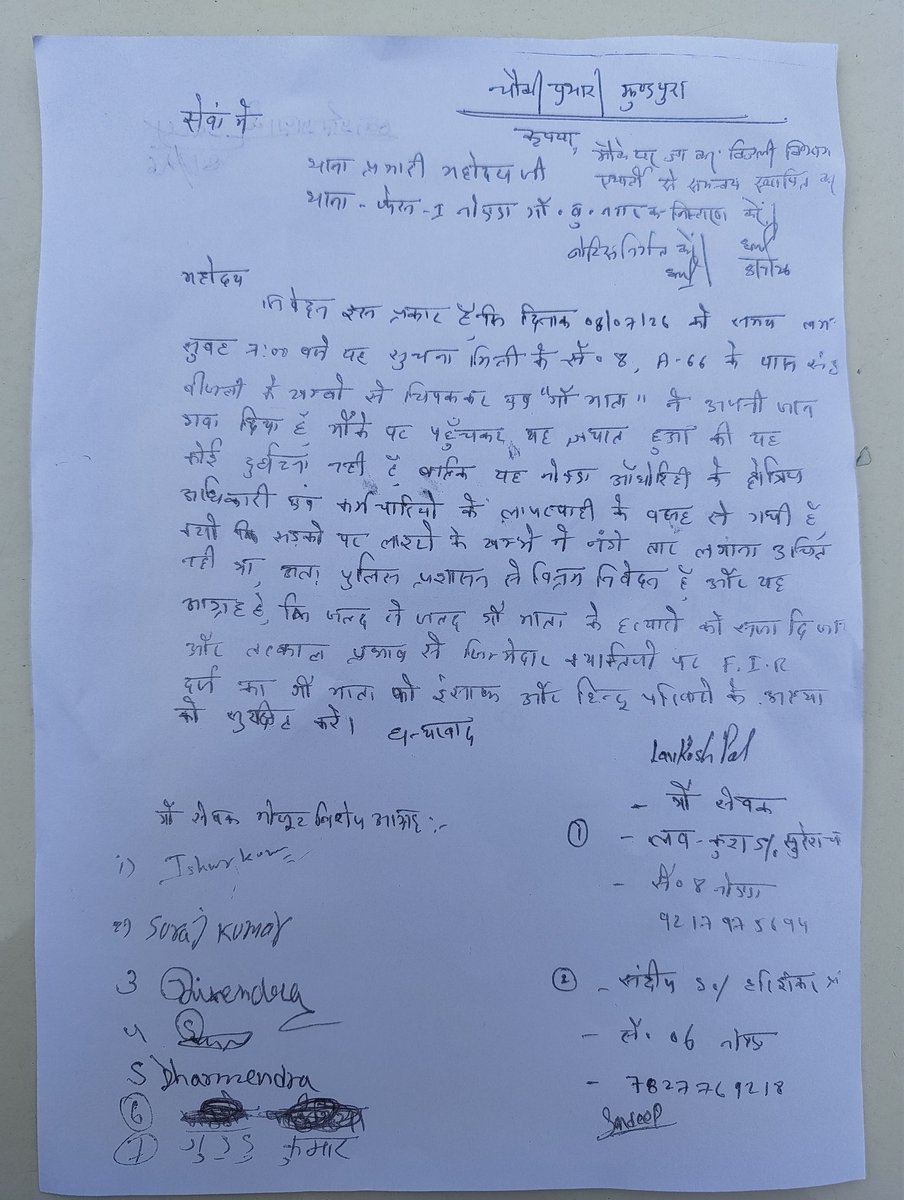 चौकी प्रभारी झुण्डपुरा
सेवा में
कृपया, मौके पर जा कर बिजली विभाग
थाना प्रभारी महोदय जी
से समन्वय स्थापित कर
थाना - फेस-I नोएडा गौ. बु. नगर
निस्तारण करें।
नोटिस निर्गत करें
महोदय
निवेदन इस प्रकार है कि दिनांक 08/07/26 को समय लगभ
सुबह 7:00 बजे यह सुचना मिली के सै० 8, A-66 के पास
बीजली के खम्बो से चिपककर एक "गौ माता" ने अपनी जान
गवा दिया है मौके पर पहुँचकर यह ज्ञात हुआ की यह
कोई दुर्घटना नही है बल्कि यह नोएडा ऑथोरिटी के क्षेत्रिय
अधिकारी एवं कर्मचारियो के लापरवाही के वजह से गयी है
क्यो कि सड़को पर लाइटो के खम्भे में नंगे तार लगाना उचित
नही था, अतः पुलिस प्रशासन से विन्रम निवेदन है और यह
आग्रह है, कि जल्द से जल्द गौ माता के हत्यारो को सजा दि जाए
और तत्काल प्रभाव से जिम्मेदार व्यक्तियो पर F.I.R
दर्ज कर गौ माता को इंसाफ और हिन्दू परिवारो के आस्था
को सुरक्षित करे। धन्यवाद
Lavkosh Pal
- गौ सेवक
गौ सेवक मौजूद विशेष आग्रह :-
① - लव-कुश S/o सुरेश
1) Ishur kumar
- सै० 8 नोएडा
9217975694
2) Suraj kumar
3 Dinendra
② - संदीप S/o
4
- सै० 06 नोएडा
5 Dharmendra
- 7827769218
⑥
Sandeep
⑦ गुड्डु कुमार